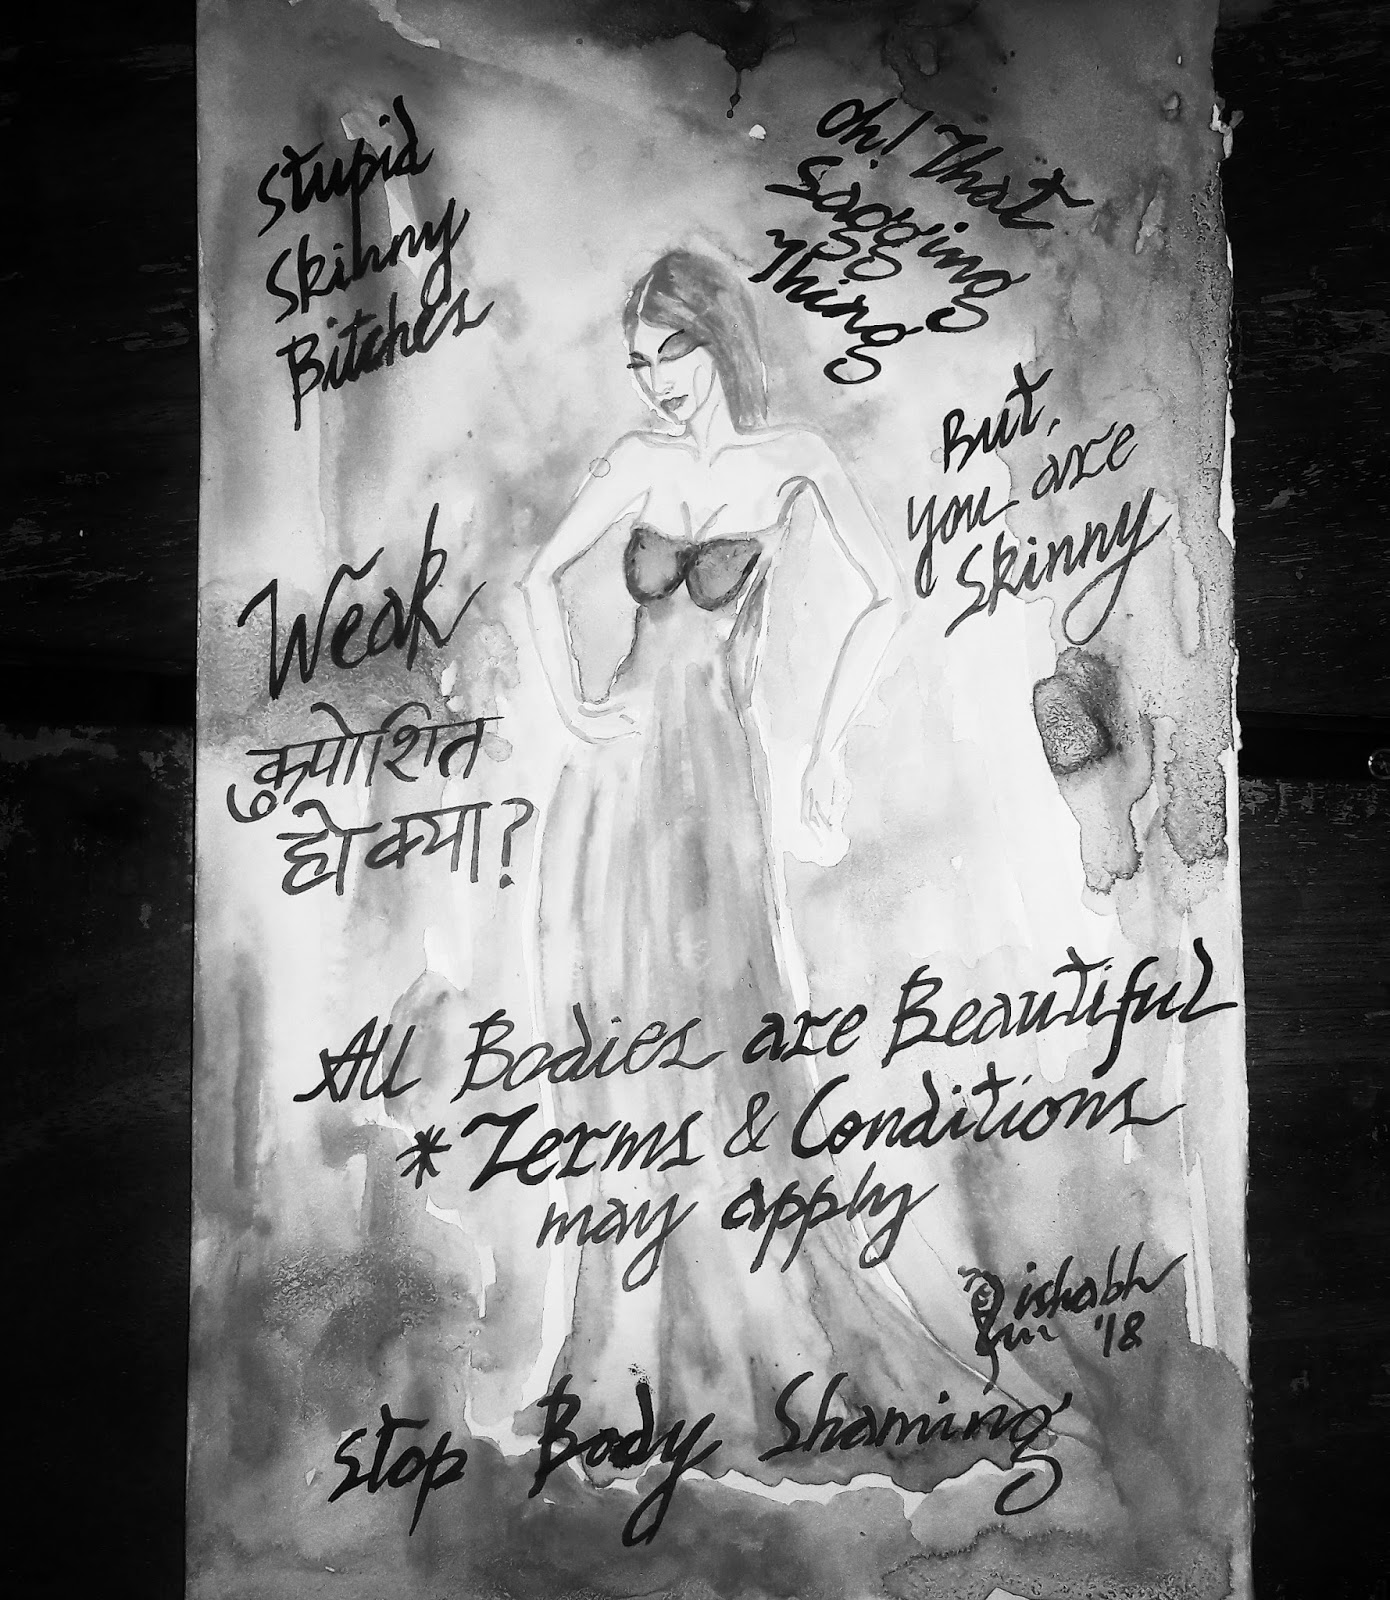 Stupid
Skinny
Bitches
Oh! That
Sagging
Thing
But,
you are
Skinny
Weak
कुपोशित
हो क्या?
All Bodies are Beautiful
* Terms & Conditions
may apply
Rishabh
'18
Stop Body Shaming